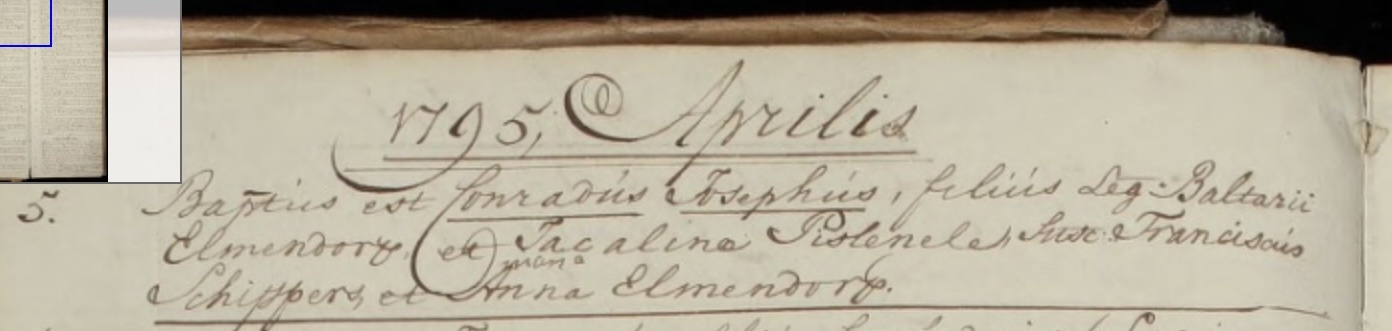 1795, Aprilis
5. Baptus est Conradus Josephus, filius Leg: Baltarii
Elmendorp, et Jacalina Pislenele, Susc: Franciscus
Schippers, et maria Anna Elmendorp.